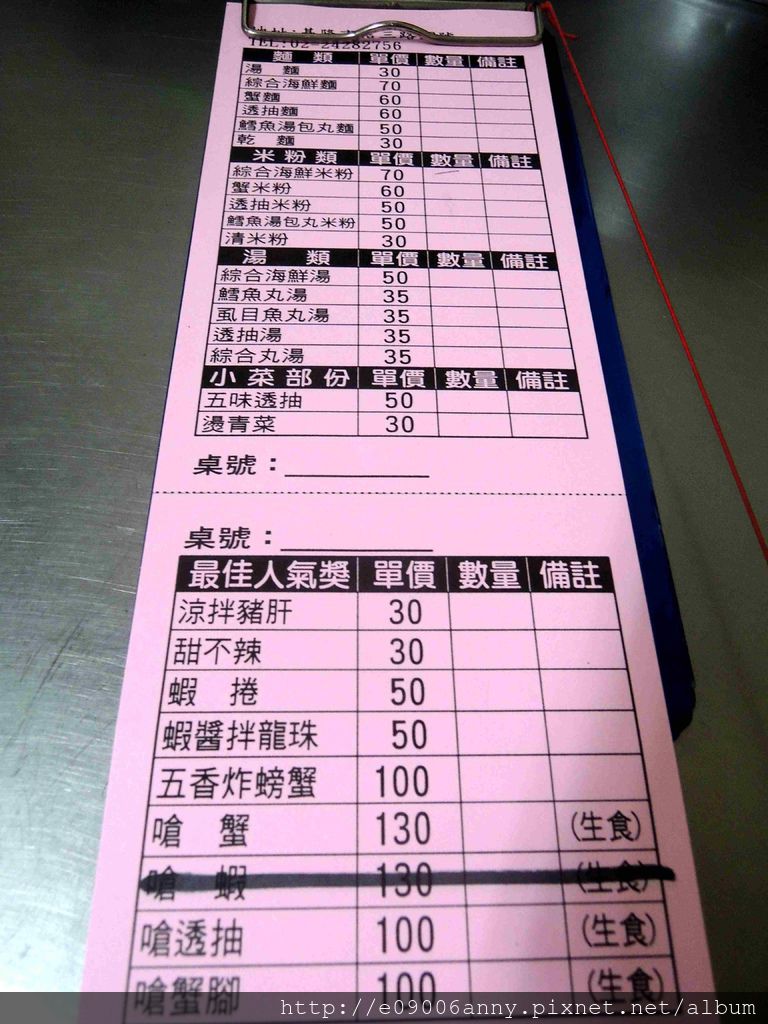 TEL:02-24282756
麵類 單價 數量 備註
湯麵 30
綜合海鮮麵 70
蟹麵 60
透抽麵 60
鱈魚湯包丸麵 50
乾麵 30
米粉類 單價 數量 備註
綜合海鮮米粉 70
蟹米粉 60
透抽米粉 50
鱈魚湯包丸米粉 50
清米粉 30
湯類 單價 數量 備註
綜合海鮮湯 50
鱈魚丸湯 35
虱目魚丸湯 35
透抽湯 35
綜合丸湯 35
小菜部份 單價 數量 備註
五味透抽 50
燙青菜 30
桌號：
桌號：
最佳人氣獎 單價 數量 備註
涼拌豬肝 30
甜不辣 30
蝦捲 50
蝦醬拌龍珠 50
五香炸螃蟹 100
嗆蟹 130 (生食)
嗆蝦 130 (生食)
嗆透抽 100 (生食)
嗆蟹腳 100 (生食)
http://e09006anny.pixnet.net/album